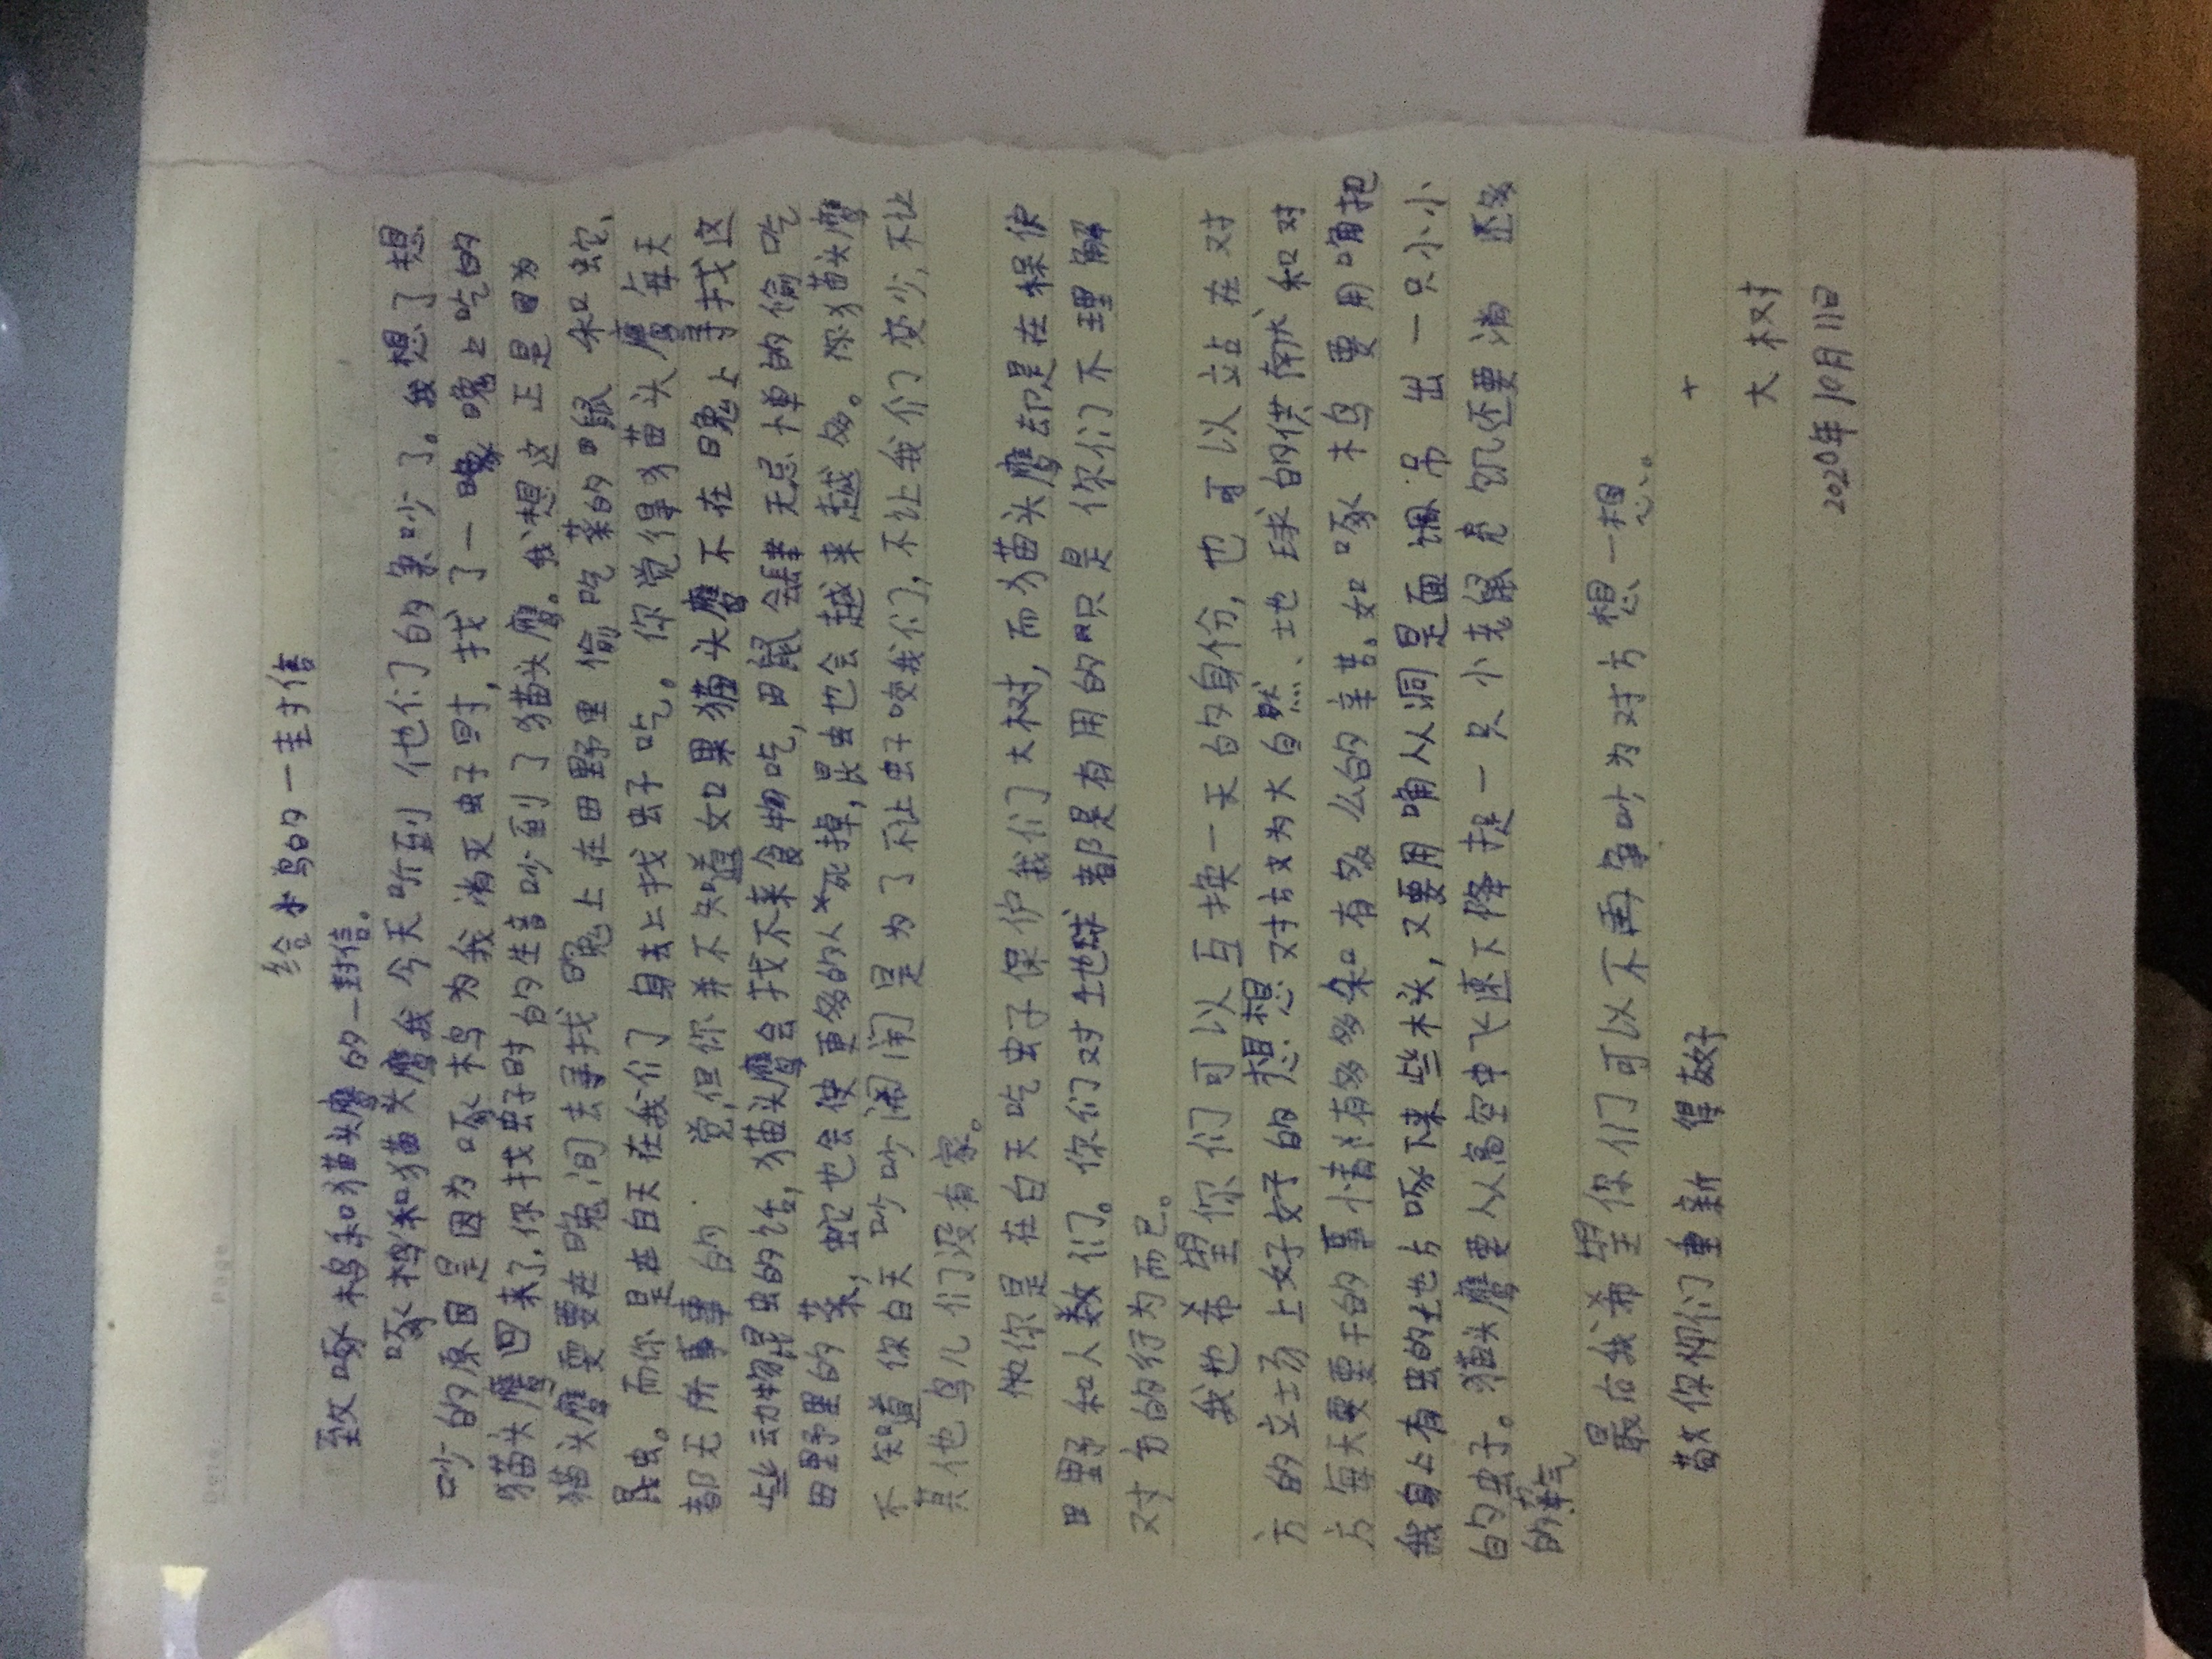 给木鸟的一封信
致啄木鸟和猫头鹰的一封信。
啄木鸟和猫头鹰我今天听到他们的争吵了。我想了想
吵的原因是因为啄木鸟为我消灭虫子时,找了一晚上吃的
猫头鹰回来了,你找虫子时的生音吵到了猫头鹰。我想这正是因为
猫头鹰要在晚间去寻找晚上在田野里偷吃菜的田鼠和蛇、
昆虫。而你是在白天在我们身上找虫子吃。你觉得猫头鹰每天
都无所事事的觉,但你并不知道如果猫头鹰不在晚上寻找这
些动物昆虫的话,猫头鹰会找不来食物吃,田鼠会肆无忌惮的偷吃
田野里的菜,蛇也会使更多的人死掉,昆虫也会越来越多。你猫头鹰
不知道你白天吵吵闹闹是为了不让虫子咬我们,不让我们变少,不让
其他鸟儿们没有家。
做你是在白天吃虫子保护我们大树,而猫头鹰却是在保护
田野和人数们。你们对土地球都是有用的只是你们不理解
对方的行为而已。
我也希望你们可以互换一天的身份,也可以站在对
方的立场上好好的想想对方为大自然、地球的供献和对
方每天要干的事情有多多和有多么的辛苦。如啄木鸟要用嘴把
我身上有虫的地方啄下来些木头,又要用嘴从洞里面调吊出一只小小
的虫子。猫头鹰要从高空中飞速下降捉一只小老鼠充饥还要消还多
的力气
最后我希望你们可以不再争吵为对方想一想。
敬你你们重新得好
大树
2020年10月11日